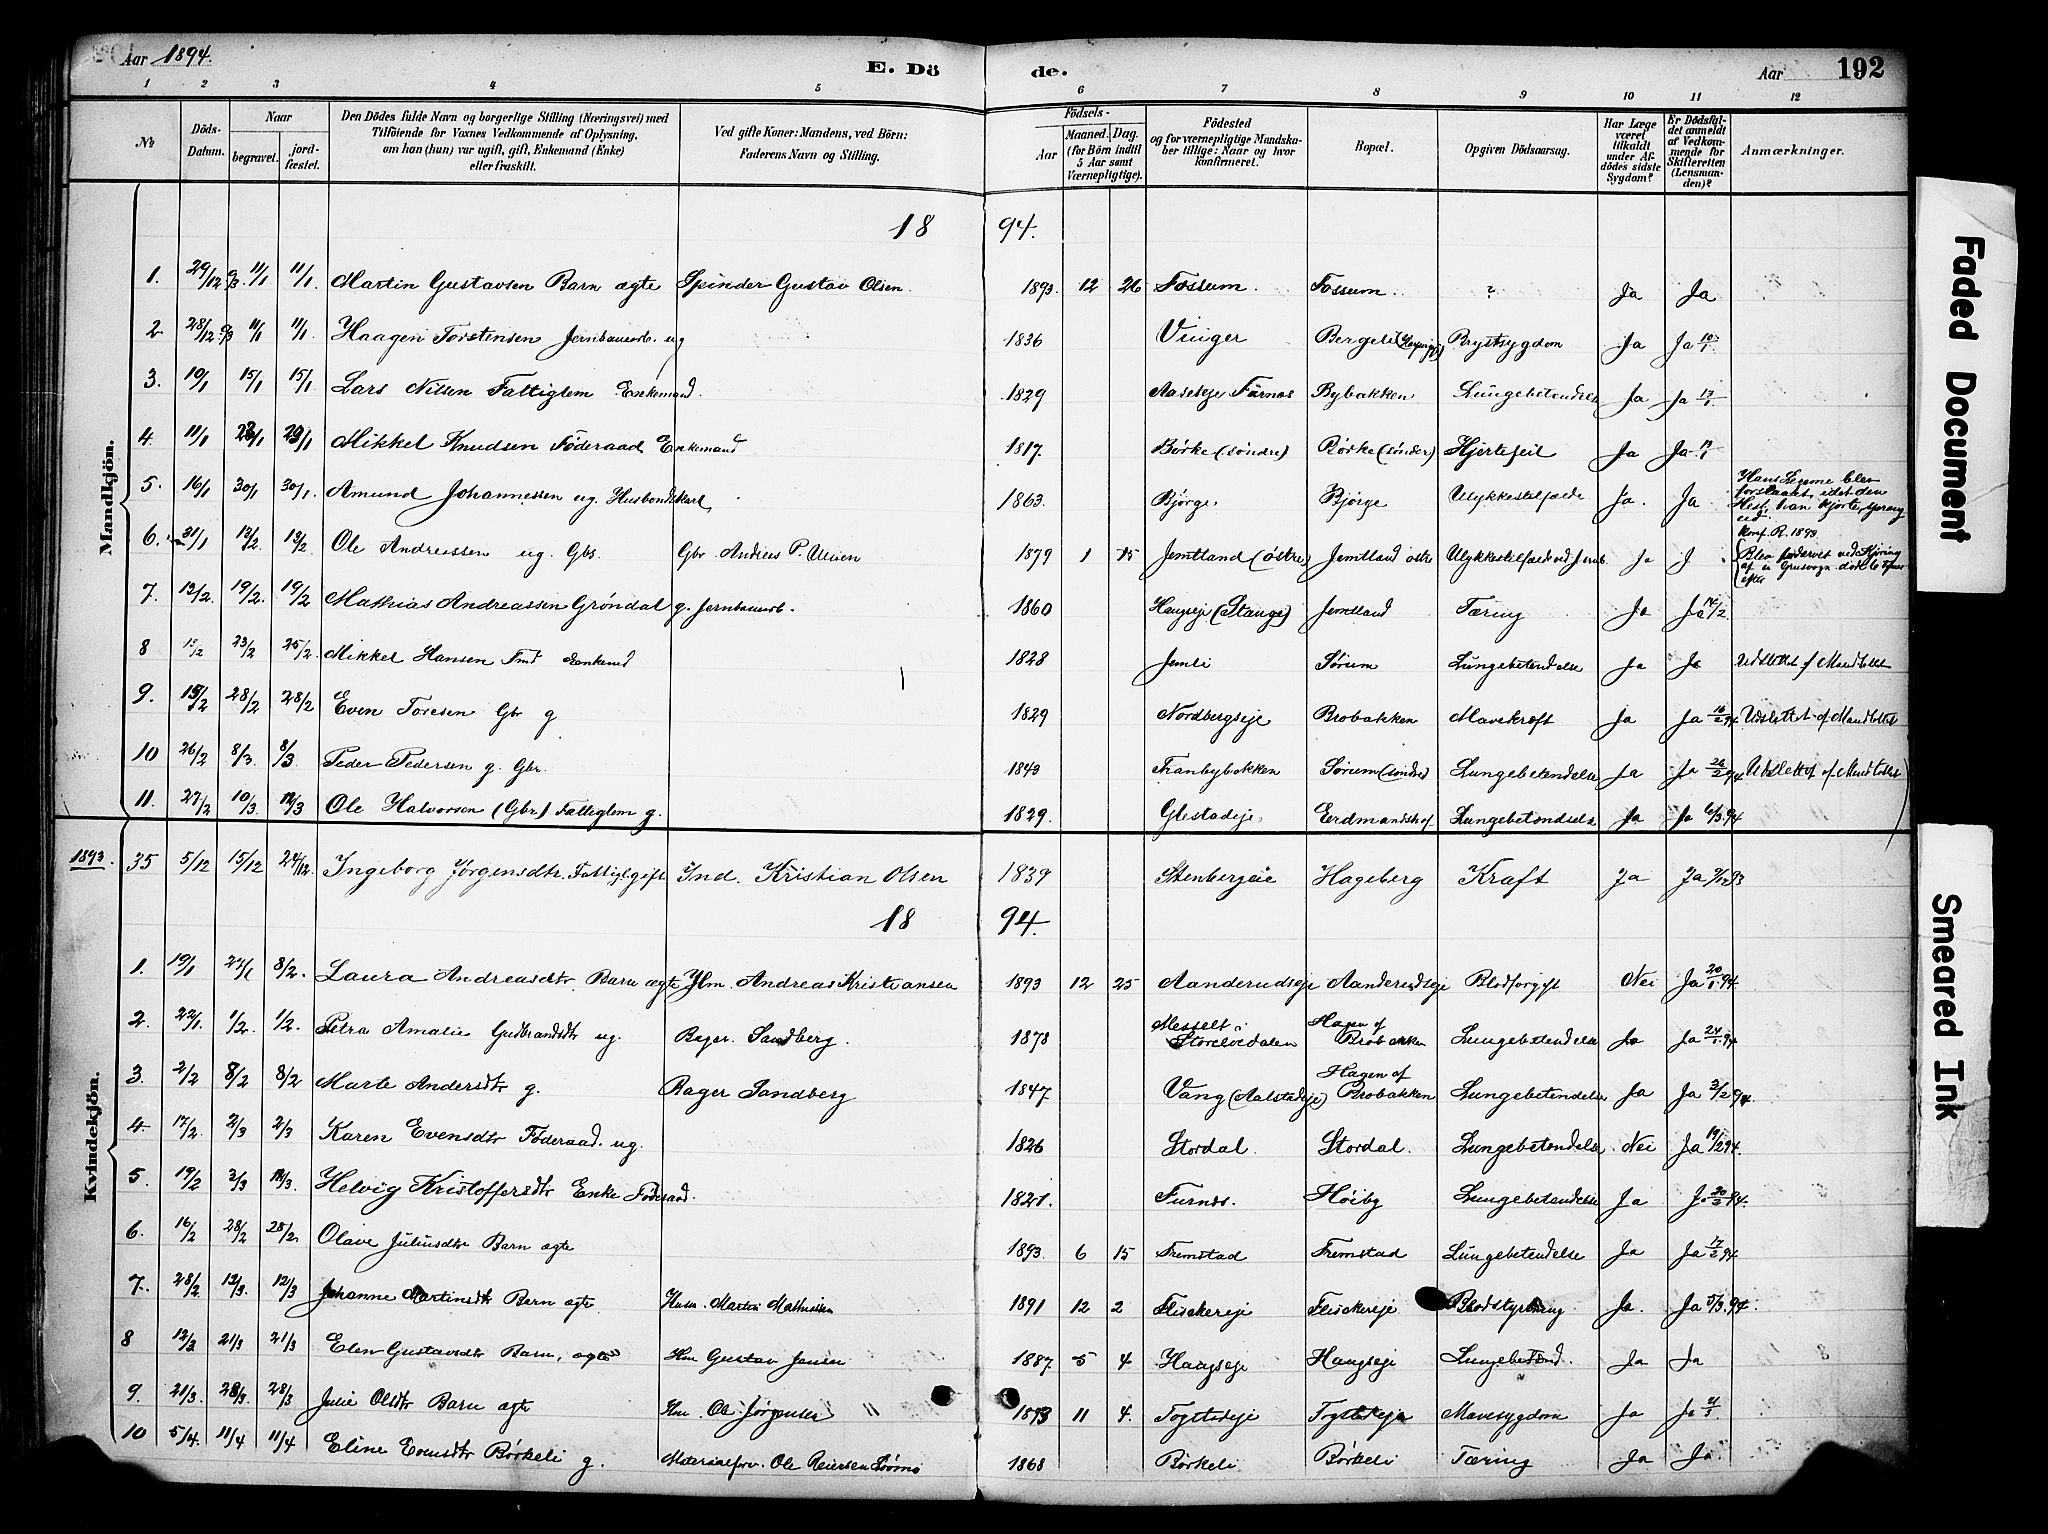 Aar 1894.
E. Dö de.
Aar 192
1 2 3 4 5 6 7 8 9 10 11 12
№
Döds-Datum.
Naar
begravet.
jord-fæstet.
Den Dödes fulde Navn og borgerlige Stilling (Næringsvei) med
Tilföiende for Voxnes Vedkommende af Oplysning,
om han (hun) var ugift, gift, Enkemand (Enke)
eller fraskilt.
Ved gifte Koner: Mandens, ved Börn:
Faderens Navn og Stilling.
Födsels-
Aar
Maaned. Dag.
(for Börn indtil
5 Aar samt
Værnepligtige).
Födested
og for værnepligtige Mandska-
ber tillige: Naar og hvor
konfirmeret.
Bopæl.
Opgiven Dödsaarsag.
Har Læge
været
tilkaldt
under Af-
dödes sidste
Sygdom?
Er Dödsfal-
det anmeldt
af Vedkom-
mende for
Skifteretten
(Lensman-
den)?
Anmærkninger.
Mandkjön.
18 94.
1. 29/12 93. 11/1 11/1. Martin Gustavsen Barn ægte Spinder Gustav Olsen. 1893. 12 26 Fossum. Fossum. ? Ja Ja
2 28/12 93 11/1 11/1 Haagen Torstensen Jernbanearb. ug 1836 Vinger Bergeli Brystsygdom Ja Ja 10/1.
3. 10/1 15/1 15/1 Lars Nilsen Fattiglem Enkemand. 1829 Aaseteje Furnæs Bybakken Lungebetendelse Ja Ja 13/1.
4. 11/1 29/1 29/1 Mikkel Knudsen Föderaad Enkemand 1817. Börke (söndre) Börke (söndre) Hjertefeil Ja Ja
5. 16/1 30/1 30/1. Amund Johannessen ug. Husbondskarl 1863. Bjørge. Bjørge Ulykkestilfælde Ja. Ja Hans Lemme blev forslaaet, idet den Hest, han kjørte, sprang ud.
6. 31/1 12/2. 12/2 Ole Andreassen ug. Gbs. Gbr Andreas P. 1879 1 15 Jemtland (østre) Jemtland østre Ulykkestilfælde ved Jernb. Ja J Konf. R. 1893. Blev ved Kjøring af en Grusvogn døde 6 Timer efter
7. 13/2. 19/2. 19/2 Mathias Andreassen Grøndal g. Jernbanearb. 1860 Haugseje (Stange) Jemtland Tæring Ja Ja 14/2
8 23/2 25/2. Mikkel Hansen Enkemd 1828 Jemli Sørum Lungebetendelse Ja Ja Udslettet af Mandtallet
9. 15/2 28/2 28/2 Even Toresen Gbr g 1829 Nordbergseje Brobakken Mavekræft Ja Ja 16/2 94 Udslettet af Mandtallet
10 26/2 8/3. 8/3 Peder Pedersen g. Gbr. 1843 Tranbybakken Sørum (söndre) Lungebetendelse Ja Ja 28/2 94 Udslettet af Mandtallet
11. 27/2 10/3. 12/3 Ole Halvorsen (Gbr) Fattiglem g. 1829. Glestadeje. Erdmandshof. Lungebetendelse Ja Ja 6/3 94
1893. 35 5/12 15/12 24/12. Ingeborg Jørgensdtr. Fattigl. gift Ind. Kristian Olsen 1839 Stenbergeie Hageberg Kræft Ja Ja 7/12 93
Kvindekjön.
18 94.
1. 19/1 27/1 8/2. Laura Andreasdtr Barn ægte Hm. Andreas Kristiansen 1893 12 25 Aanderudseje Aanderudseje Blodforgift Nei Ja 20/1 94.
2. 22/1. 1/2. 1/2. Petra Amalie Gudbrandsdtr ug. Bager. Sandberg. 1878 Messelt i Storelvedalen Hagen af Brobakken Lungebetendelse Ja Ja 24/1 94
3. 2/2 8/2 8/2 Marte Andersdtr g. Bager Sandberg 1847 Vang (Aalstadeje) Hagen af Brobakken Lungebetendelse Ja Ja 3/2 94
4. 17/2. 2/3 2/3 Karen Evensdtr Föderaad. ug. 1826 Stordal. Stordal. Lungebetendelse Nei Ja 19/2 94.
5. 19/2 3/3 12/3. Helvig Kristoffersdtr Enke Föderaad. 1821. Furnæs. Høiby Lungebetendelse Ja Ja 20/2 94.
6. 16/2 28/2 28/2. Olave Juliusdtr Barn ægte 1893. 6 15 Fremstad Fremstad Lungebetendelse Ja Ja 17/2 94
7. 28/2 12/3. 12/3 Johanne Martinsdtr Barn ægte Husm. Martin Mathiassen 1891 12 2 Flisekereje Flisekereje Blodstyrtning Ja. Ja 5/3 94.
8 12/3 21/3 21/3 Elen Gustavsdtr Barn, ægte Hm Gustav Jensen 1887. 5 4 Haugseje Haugseje Lungebetend. Ja Ja
9 21/3. 28/3. 28/3 Julie Olsdtr Barn ægte Hm Ole Jørgensen 1893 11 4. Togstadeje Togstadeje Mavesygdom Ja Ja 21/3
10 5/4. 11/4 11/4 Eline Evensdtr Børkeli g. Materialforv. Ole Reiersen Sörmo 1868 Börkeli Börkeli Tæring Ja Ja.
Faded Document
Smeared Ink